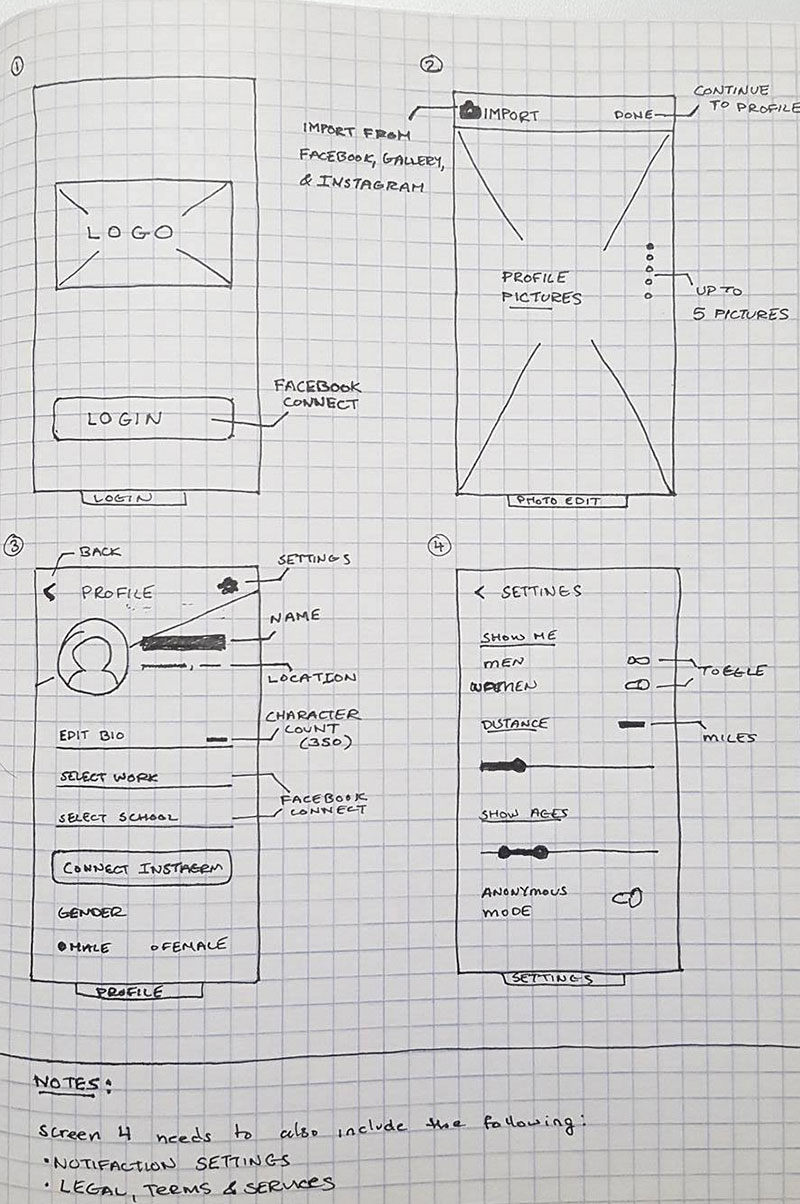 1
LOGO
LOGIN
FACEBOOK
CONNECT
LOGIN
2
IMPORT
DONE
CONTINUE
TO PROFILE
IMPORT FROM
FACEBOOK, GALLERY,
& INSTAGRAM
PROFILE
PICTURES
UP TO
5 PICTURES
PHOTO EDIT
3
BACK
PROFILE
SETTINGS
NAME
LOCATION
EDIT BIO
CHARACTER
COUNT
(350)
SELECT WORK
SELECT SCHOOL
FACEBOOK
CONNECT
CONNECT INSTAGRM
GENDER
MALE FEMALE
PROFILE
4
< SETTINGS
SHOW ME
MEN
WOMEN
TOGGLE
DISTANCE
MILES
SHOW AGES
ANONYMOUS
MODE
SETTINGS
NOTES:
Screen 4 needs to also include the following:
• NOTIFACTION SETTINGS
• LEGAL, TERMS & SERVICES